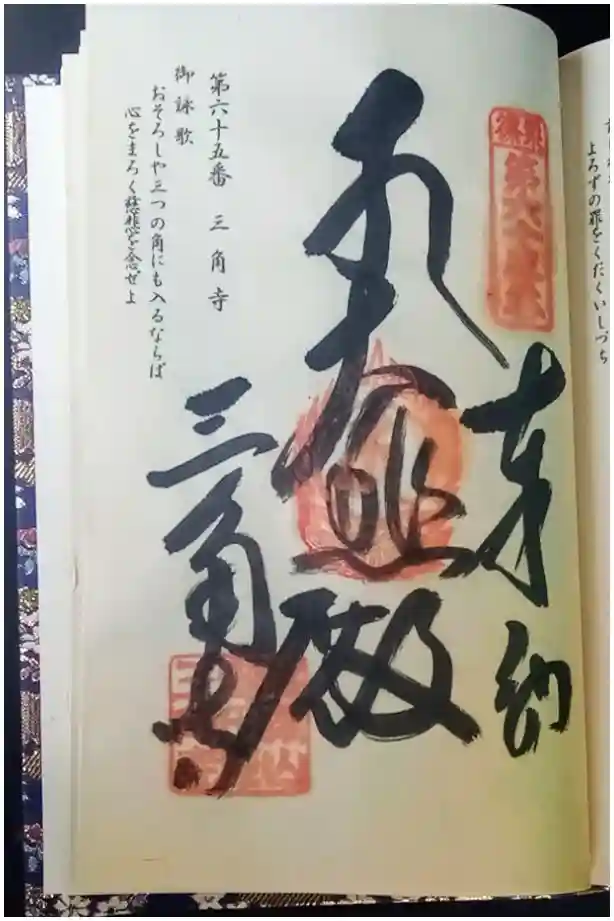 よろずの罪をくだくいしづち
第六十五番
奉納
大悲殿
三角寺
第六十五番　三角寺
御詠歌
おそろしや三つの角にも入るならば
心をまろく慈悲を念ぜよ